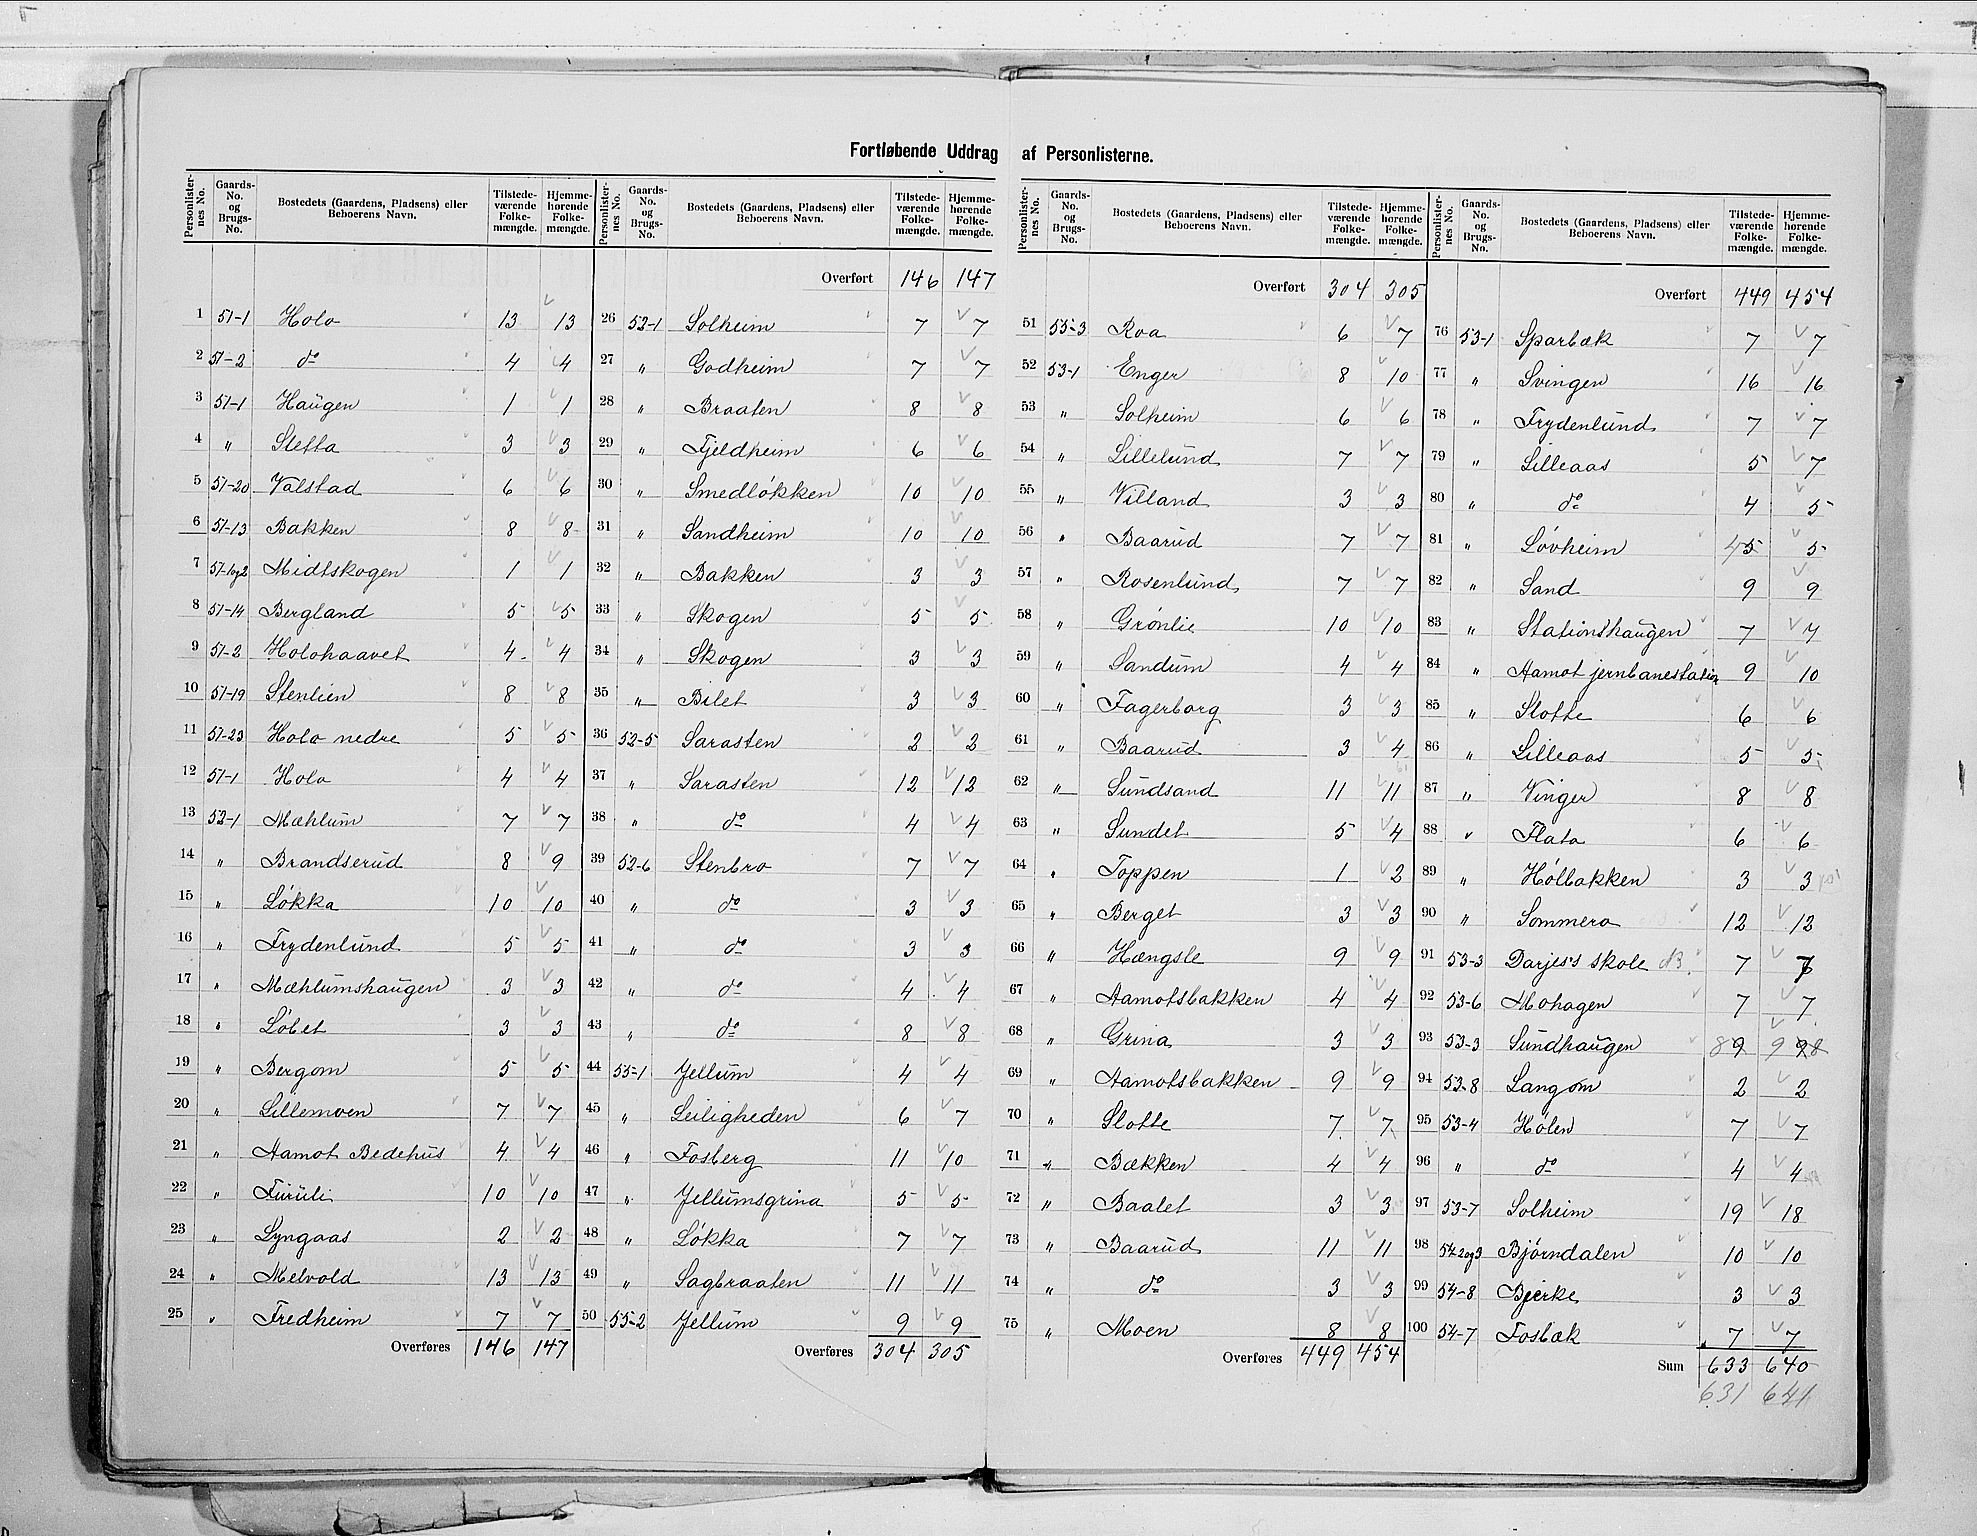 Fortløbende Uddrag af Personlisterne.
Personlisternes No. Gaards-No. og Brugs-No. Bostedets (Gaardens, Pladsens) eller Beboerens Navn. Tilstedeværende Folkemængde. Hjemmehørende Folkemængde.
1 51-1 Holo 13 13
2 51-2 do 4 4
3 51-1 Haugen 1 1
4 " Sletta 3 3
5 51-20 Valstad 6 6
6 51-13 Bakken 8 8
7 51-1og2 Midtskogen 1 1
8 51-14 Bergland 5 5
9 51-2 Holohaavet 4 4
10 51-19 Stenlien 8 8
11 51-23 Holo nedre 5 5
12 51-1 Holo 4 4
13 52-1 Mæhlum 7 7
14 " Brandserud 8 9
15 " Løkka 10 10
16 " Frydenlund 5 5
17 " Mæhlumshaugen 3 3
18 " Løbet 3 3
19 " Bergom 5 5
20 " Lillemoen 7 7
21 " Aamot Bedehus 4 4
22 " Furuli 10 10
23 " Lyngaas 2 2
24 " Melvold 13 13
25 " Fredheim 7 7
Overføres 146 147
Personlisternes No. Gaards-No. og Brugs-No. Bostedets (Gaardens, Pladsens) eller Beboerens Navn. Tilstedeværende Folkemængde. Hjemmehørende Folkemængde.
Overført 146 147
26 52-1 Solheim 7 7
27 " Godheim 7 7
28 " Braaten 8 8
29 " Fjeldheim 6 6
30 " Smedløkken 10 10
31 " Sandheim 10 10
32 " Bakken 3 3
33 " Skogen 5 5
34 " Skogen 3 3
35 " Bilet 3 3
36 52-5 Sarasten 2 2
37 " Sarasten 12 12
38 " do 4 4
39 52-6 Stenbro 7 7
40 " do 3 3
41 " do 3 3
42 " do 4 4
43 " do 8 8
44 55-1 Jellum 4 4
45 " Leiligheden 6 7
46 " Fosberg 11 10
47 " Jellumsgrina 5 5
48 " Løkka 7 7
49 " Sagbraaten 11 11
50 55-2 Jellum 9 9
Overføres 304 305
Personlisternes No. Gaards-No. og Brugs-No. Bostedets (Gaardens, Pladsens) eller Beboerens Navn. Tilstedeværende Folkemængde. Hjemmehørende Folkemængde.
Overført 304 305
51 55-3 Roa 6 7
52 53-1 Enger 8 10
53 " Solheim 6 6
54 " Lillelund 7 7
55 " Villand 3 3
56 " Baarud 7 7
57 " Rosenlund 7 7
58 " Grønlie 10 10
59 " Sandum 4 4
60 " Fagerborg 3 3
61 " Baarud 3 4
62 " Sundsand 11 11
63 " Sundet 5 4
64 " Toppen 1 2
65 " Berget 3 3
66 " Hængsle 9 9
67 " Aamotsbakken 4 4
68 " Grina 3 3
69 " Aamotsbakken 9 9
70 " Slotte 7 7
71 " Bækken 4 4
72 " Baalet 3 3
73 " Baarud 11 11
74 " do 3 3
75 " Moen 8 8
Overføres 449 454
Personlisternes No. Gaards-No. og Brugs-No. Bostedets (Gaardens, Pladsens) eller Beboerens Navn. Tilstedeværende Folkemængde. Hjemmehørende Folkemængde.
Overført 449 454
76 53-1 Sparbæk 7 7
77 " Svingen 16 16
78 " Frydenlund 7 7
79 " Lilleaas 5 7
80 " do 4 5
81 " Løvheim 4 5 5
82 " Sand 9 9
83 " Stationshaugen 7 7
84 " Aamot jernbanestation 9 10
85 " Slotte 6 6
86 " Lilleaas 5 5
87 " Vinger 8 8
88 " Flata 6 6
89 " Hølbakken 3 3
90 " Sommero 12 12
91 53-3 Darjes's skole 7 7
92 53-6 Mohagen 7 7
93 53-3 Sundhaugen 8 9 9 9 8
94 53-8 Langom 2 2
95 53-4 Hølen 7 7
96 " do 4 4
97 53-7 Solheim 19 18
98 54-2og3 Bjørndalen 10 10
99 54-8 Bjerke 3 3
100 54-7 Fosbæk 7 7
Sum 633 640
631 641